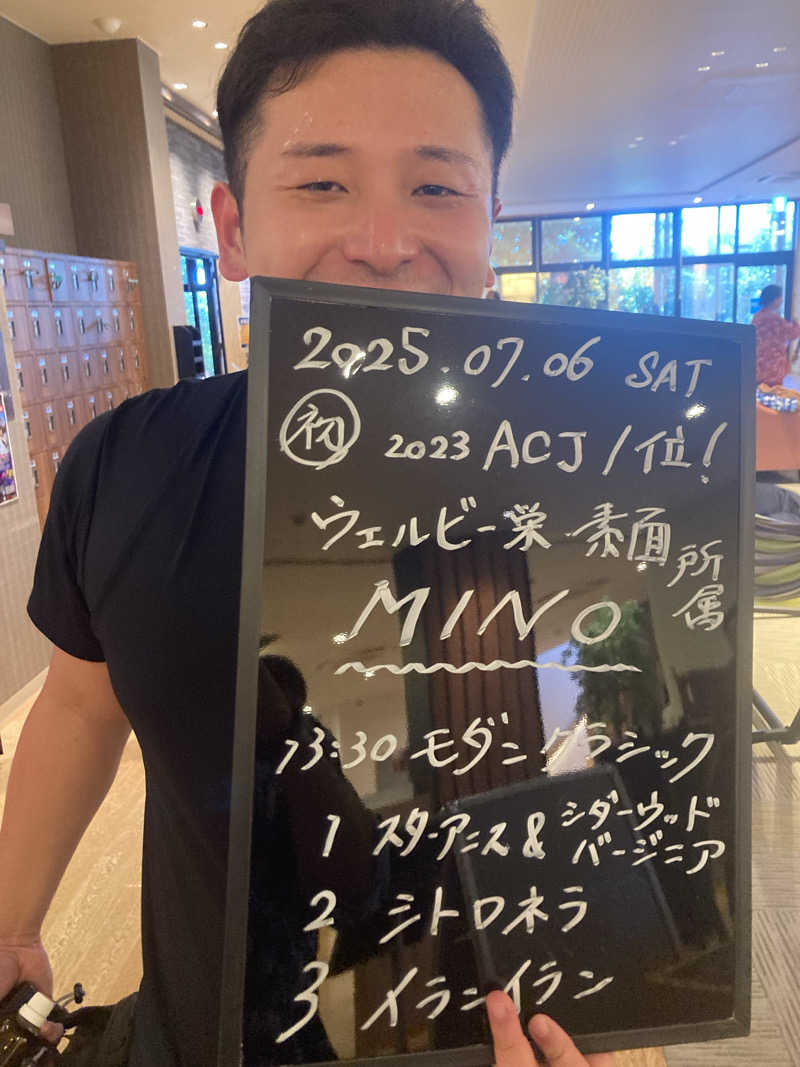 2025.07.06 SAT
初 2023 ACJ 1位!
ウェルビー栄 素面 所属
MINO
13:30 モダンクラシック
1 スターアニス & シダーウッド バージニア
2 シトロネラ
3 イランイラン